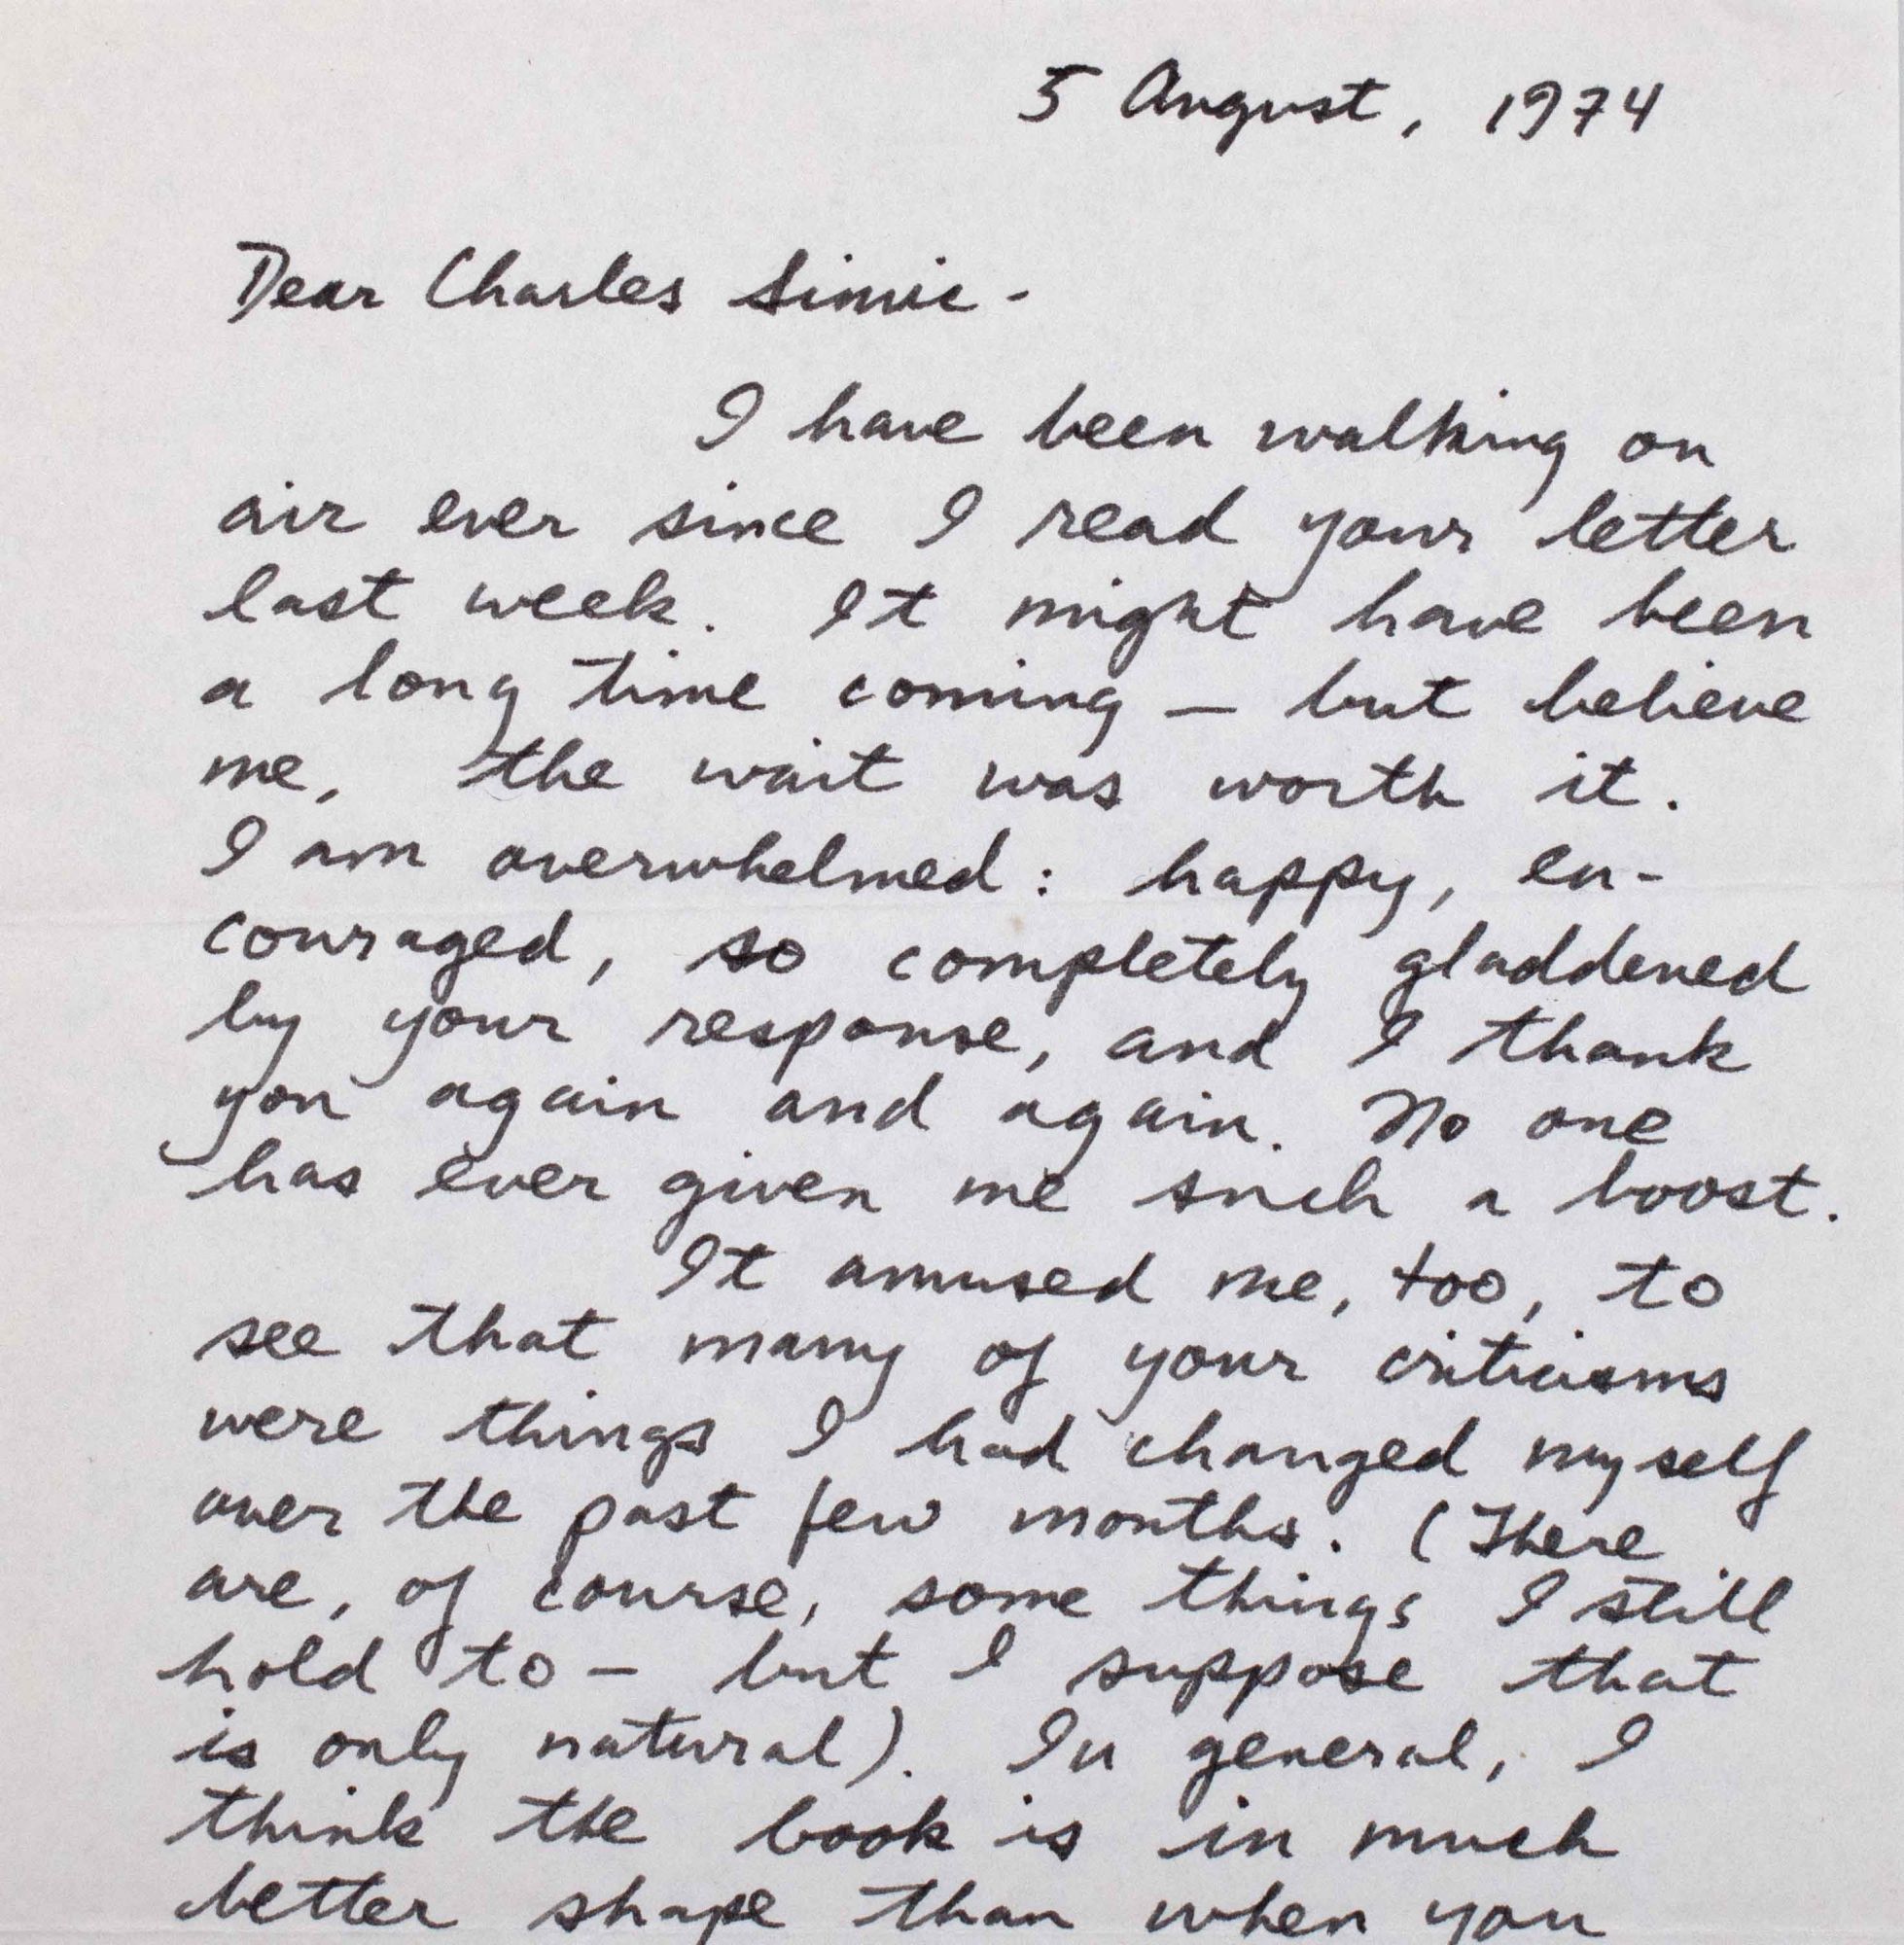 5 August, 1974
Dear Charles Simic -
I have been walking on
air ever since I read your letter
last week. It might have been
a long time coming — but believe
me, the wait was worth it.
I am overwhelmed: happy, en-
couraged, so completely gladdened
by your response, and I thank
you again and again. No one
has ever given me such a boost.
It amused me, too, to
see that many of your criticisms
were things I had changed myself
over the past few months. (There
are, of course, some things I still
hold to - but I suppose that
is only natural). In general, I
think the book is in much
better shape than when you